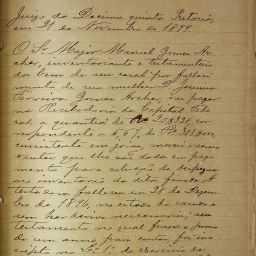 Juizo da Decima quinta Pretoria,
em 21 de Novembro de 1899.
O Sr. Major Manoel Gomes Ar
cher, inventariante e testamenteiro
dos bens de seu casal por falleci
mento de sua mulher D. Jesuina
Ferreira Gomes Archer, vai pagar
na Recebedoria da Capital Fede
ral a quantia de 20$338, cor
respondente a
consistente em joias, moveis e semo
ventes que lhe são dada em paga
mento para solução de despezas
no inventario da dita finada. A
testadora falleceu em 28 de Dezem
bro de 1896, no estado de casada e
sem herdeiros necessarios; seu
testamento no qual fixou o prazo
de um anno para contas foi ins
cripto no exercicio de